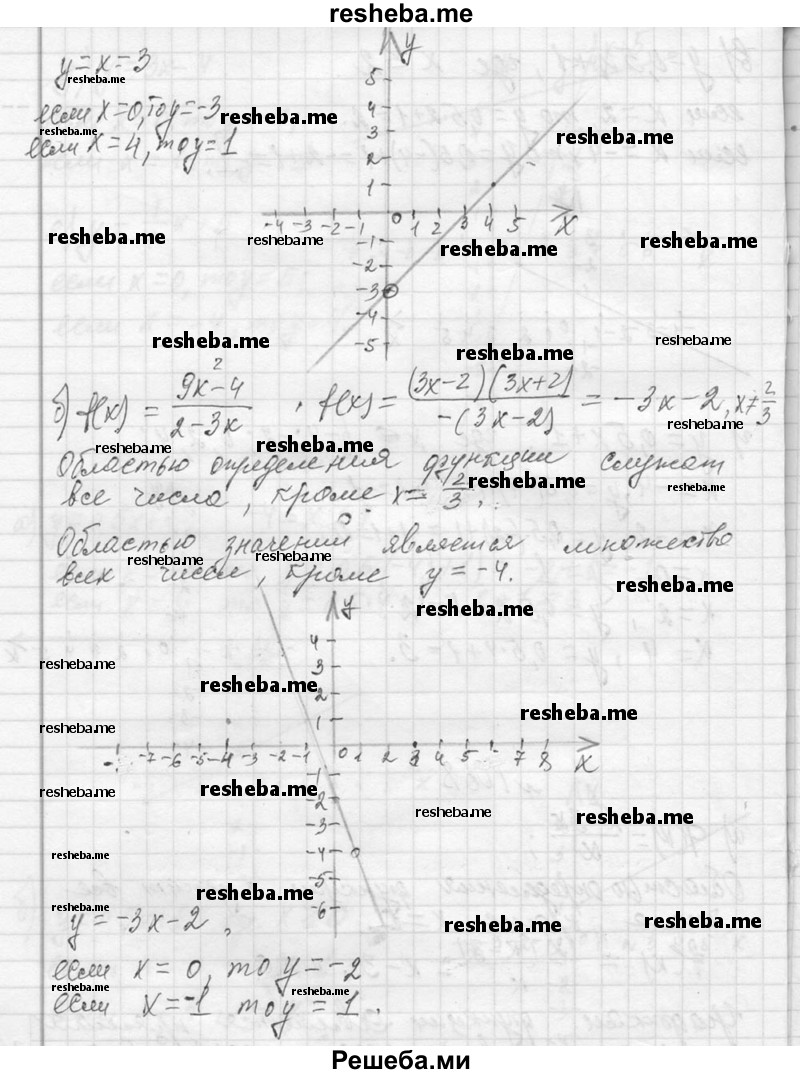 resheba.me
y = x = 3
resheba.me
если x=0, то y=-3 resheba.me
resheba.me
если x=4, то y=1
resheba.me
y
5
4
3
2
1
-4 -3 -2 -1 0 1 2 3 4 5 x
-1
-2
-3
-4
-5
resheba.me resheba.me resheba.me resheba.me
resheba.me resheba.me resheba.me
б) f(x) = (9x²-4)/(2-3x) , f(x) = ((3x-2)(3x+2))/(-(3x-2)) = -3x-2, x≠2/3
resheba.me resheba.me resheba.me
Областью определения функции служат
все числа, кроме x = 2/3,
resheba.me resheba.me
Областью значений является множество
resheba.me resheba.me
всех чисел, кроме y = -4.
resheba.me
resheba.me
y
4
3
2
1
-7 -6 -5 -4 -3 -2 -1 0 1 2 3 4 5 7 8 x
-1
-2
-3
-4
-5
-6
resheba.me
resheba.me
resheba.me
resheba.me
resheba.me resheba.me resheba.me resheba.me
resheba.me
resheba.me
y = -3x-2,
resheba.me resheba.me
если x = 0, то y = -2
resheba.me resheba.me
если x = -1 то y = 1.
Решеба.ми